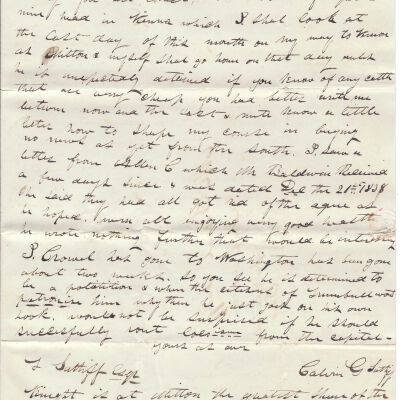 mine head in Vienna which I shal look at
the last day of this month on my way to Vernon
as Milton & myself shal go home on that day unless
he is unexpectedly detained if you know of any cattle
that are very cheap you had better write me
between now and the last & mite know a little
better how to shape my course in buying
no news as yet from the South. I saw a
letter from Allen C which Mr Baldwin Received
a few days since & was dated Dec the 21st 1838
he said they had all got rid of the ague as
he hoped were all enjoying very good health
he wrote nothing further that would be interesting
J. Crowel has gone to Washington has been gone
about two weeks. So you see he is determined to
be a politition & when the citizens of Trumbull wont
patronise him why then he just goes on his own
hook. would not be surprised if he should
successfully rout from the capital
yours as ever
L Sutliff Esqr Calvin G Sutliff
Knight is at Milton the greatest of the